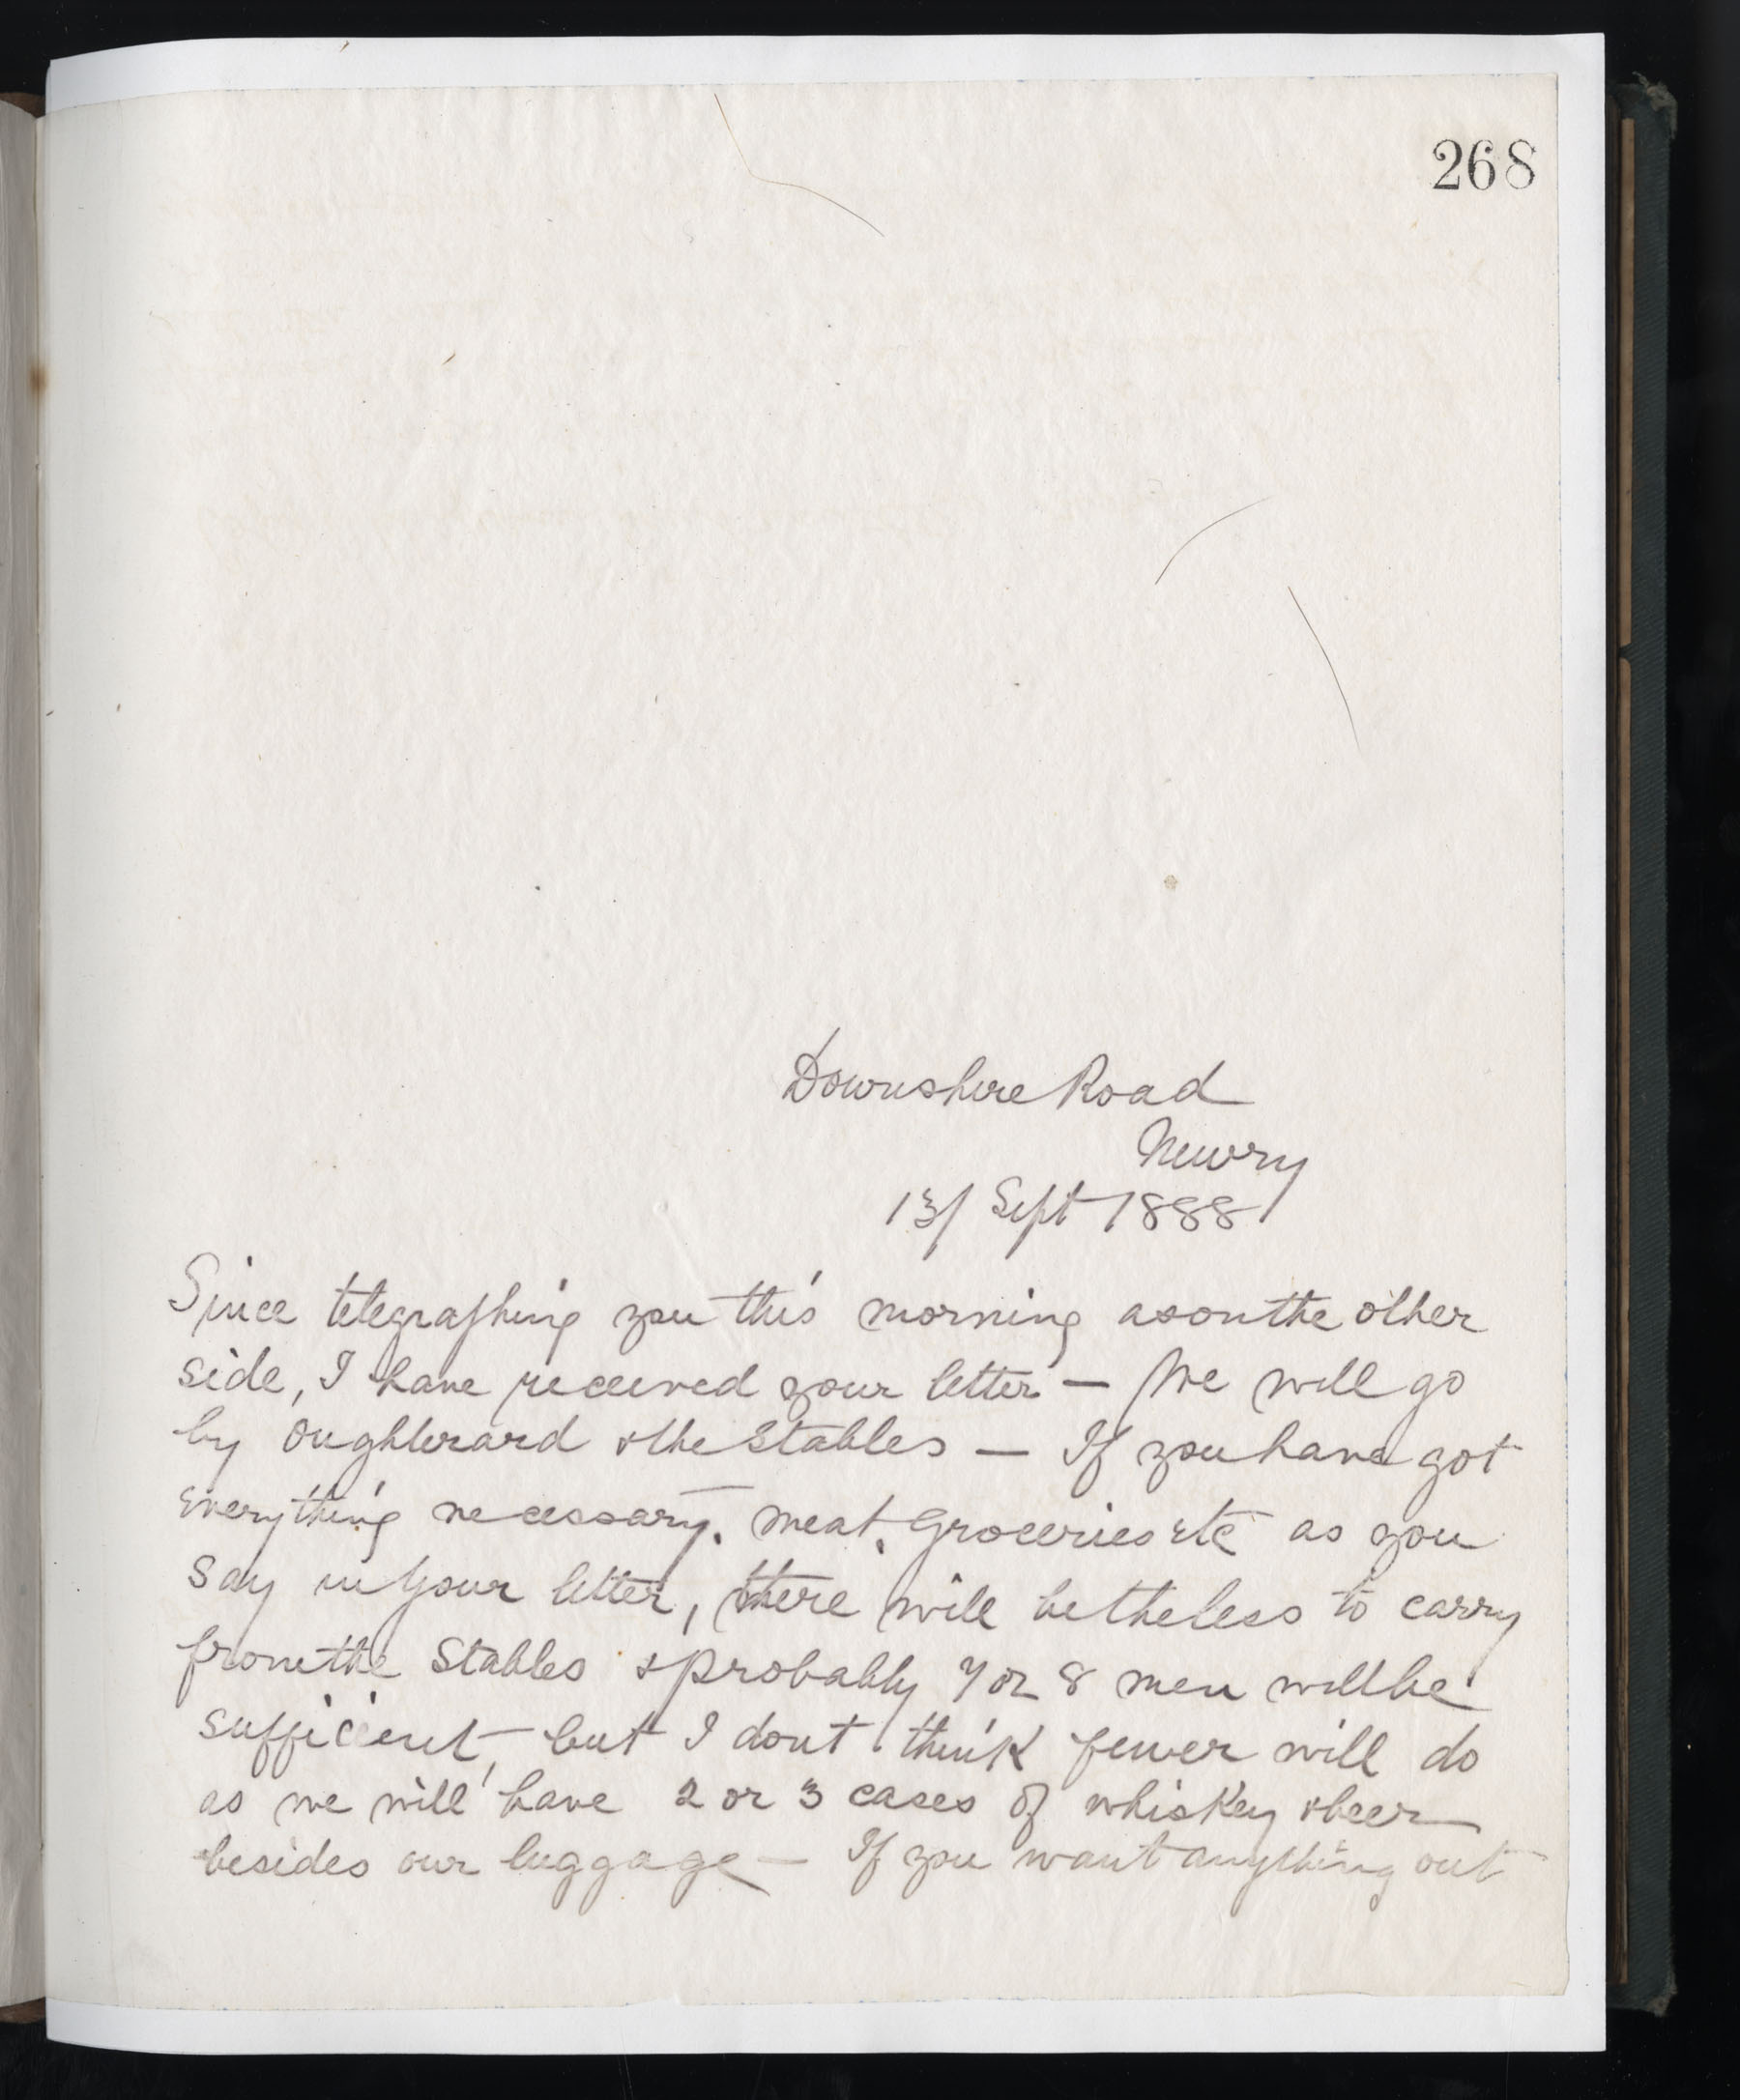 268
Downshire Road
Newry
13/ Sept 1888
Since telegraphing you this morning as on the other
side, I have received your letter — We will go
by Oughterard & the Stables — If you have got
everything necessary. meat, groceries etc as you
say in your letter, there will be the less to carry
from the Stables & probably 7 or 8 men will be
sufficient, but I dont think fewer will do
as we will have 2 or 3 cases of whiskey & beer
besides our luggage — If you want anything out